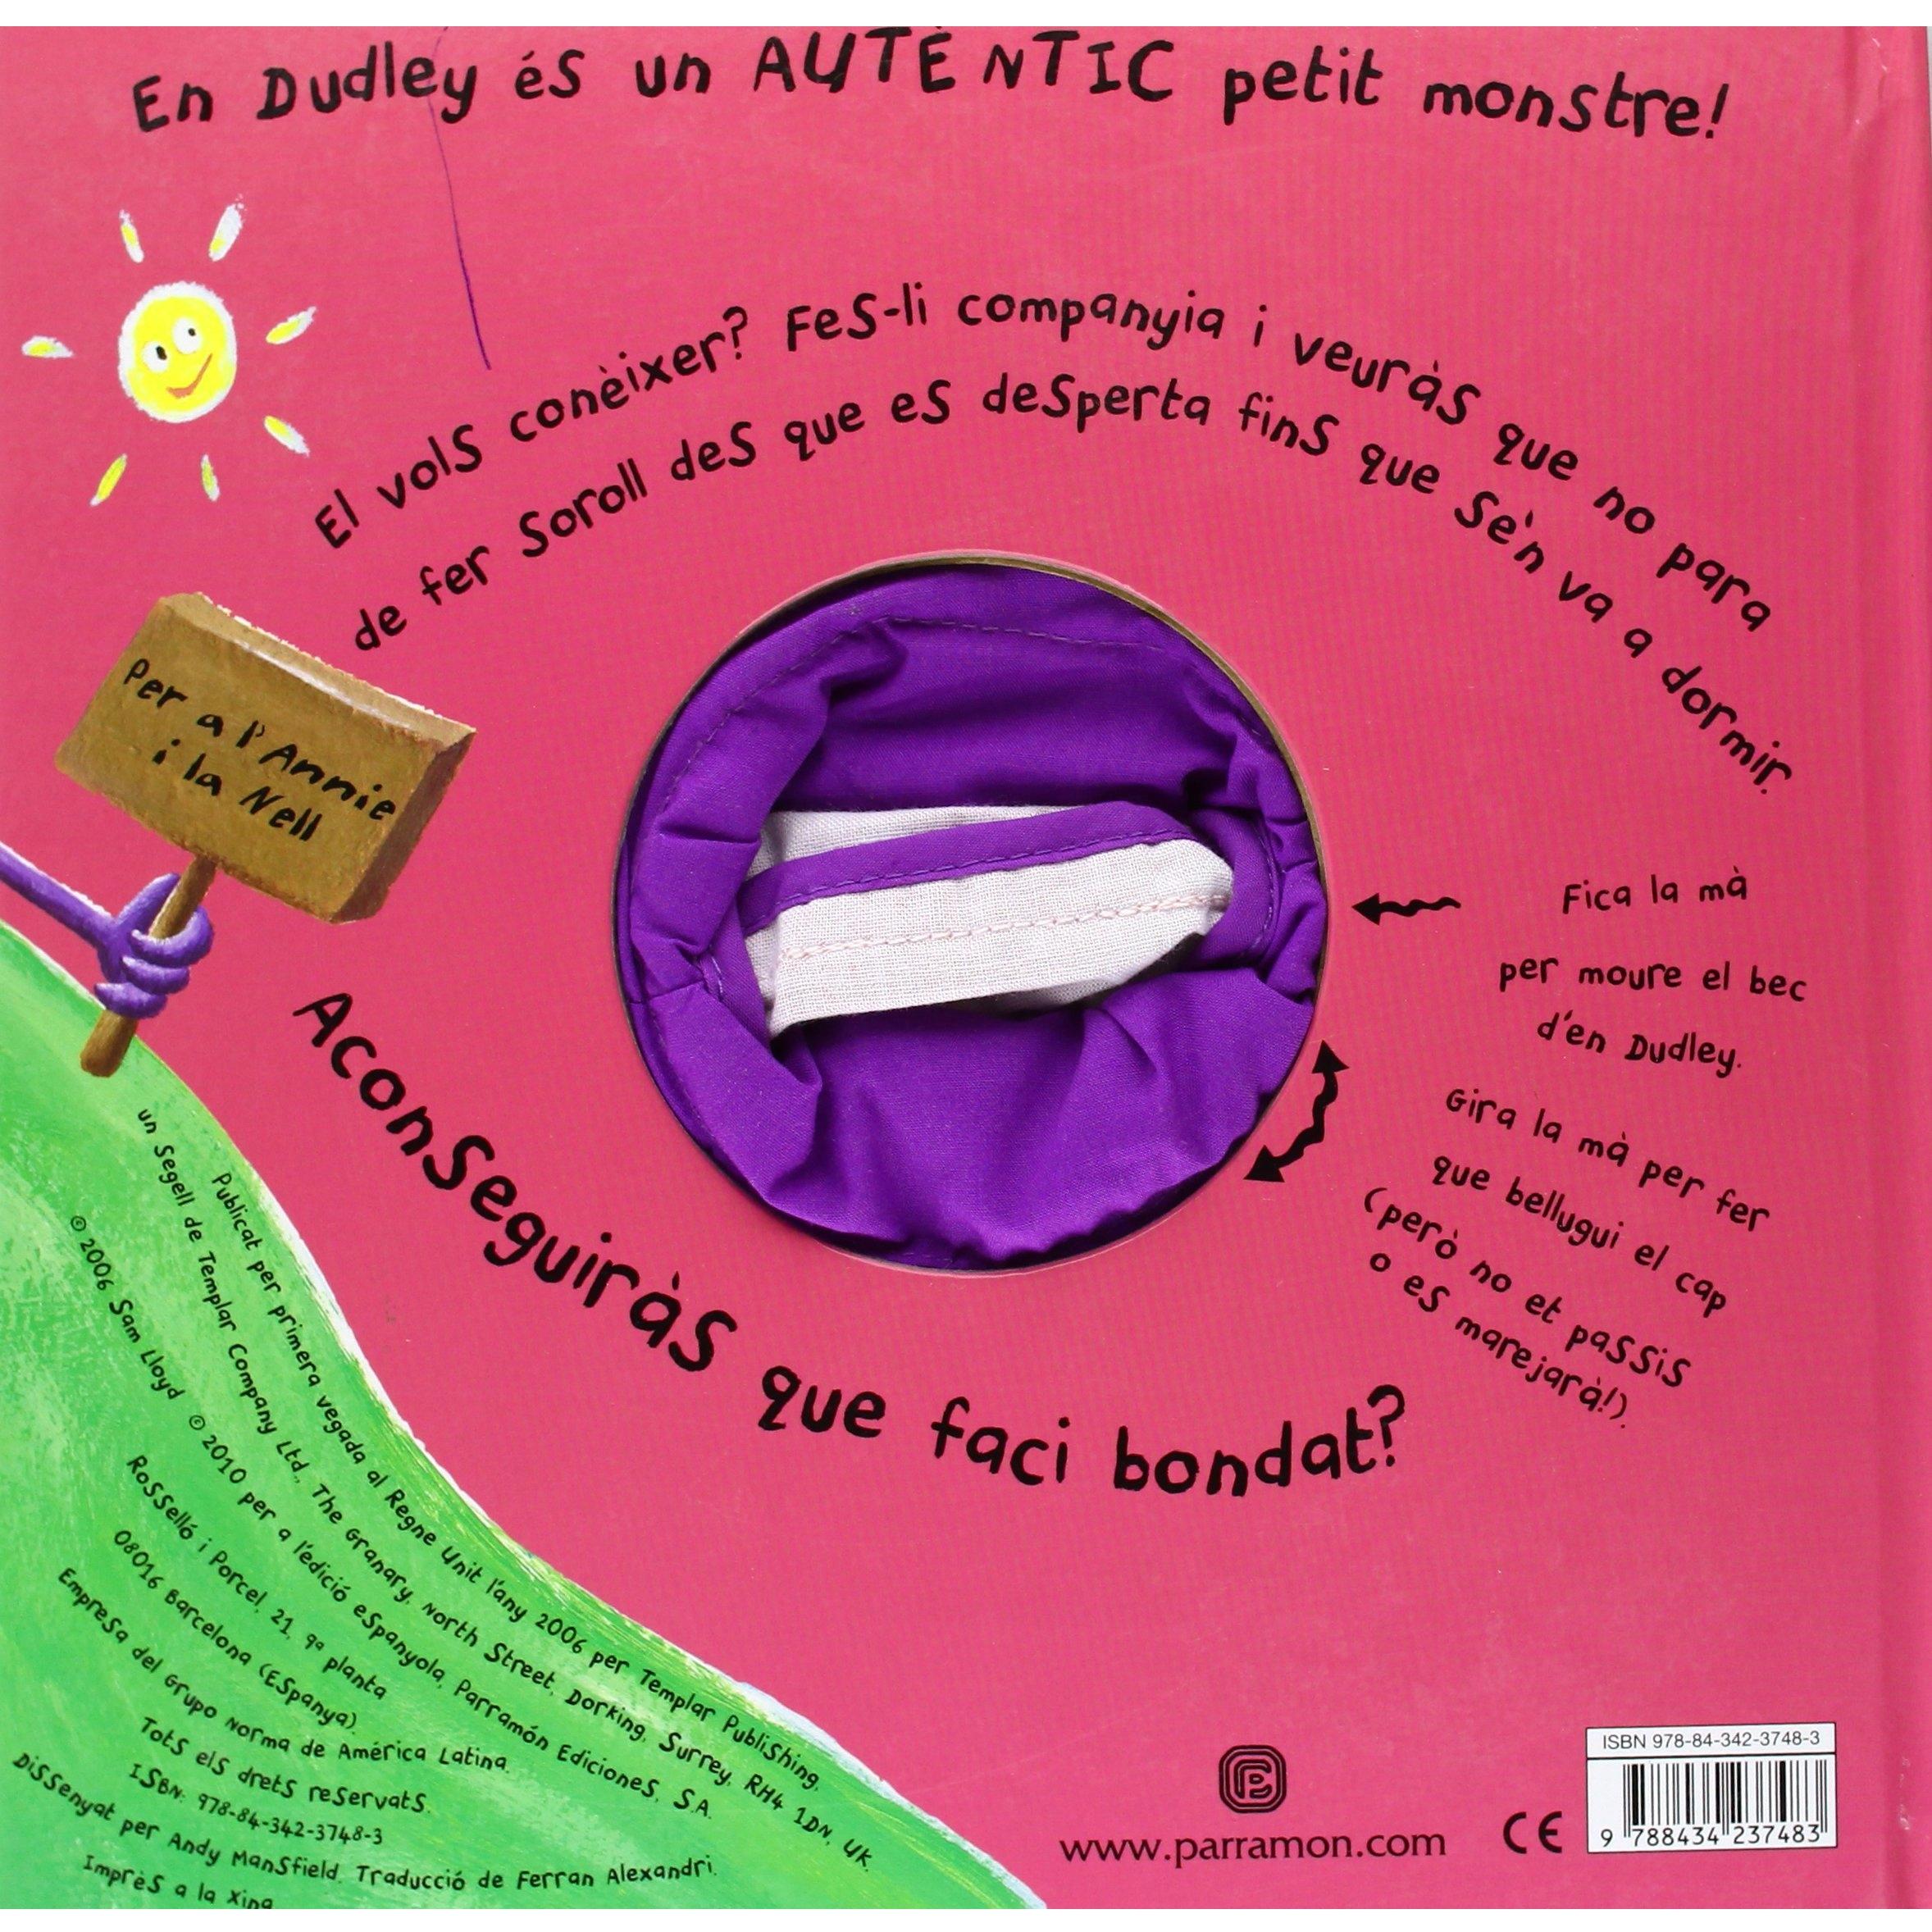 En Dudley és un AUTÈNTIC petit monstre!
El vols conèixer? Fes-li companyia i veuràs que no para
de fer soroll des que es desperta fins que se'n va a dormir.
Per a l'Annie
i la Nell
Fica la mà
per moure el bec
d'en Dudley.
Gira la mà per fer
que bellugui el cap
(però no et passis
o es marejarà!).
Aconseguiràs que faci bondat?
Publicat per primera vegada al Regne Unit l'any 2006 per Templar Publishing,
un segell de Templar Company Ltd., The Granary, North Street, Dorking, Surrey, RH4 1DN, UK.
© 2006 Sam Lloyd © 2010 per a l'edició espanyola, Parramón Ediciones, S.A.
Rosselló i Porcel, 21, 9ª planta
08016 Barcelona (Espanya).
Empresa del Grupo Norma de América Latina.
Tots els drets reservats.
ISBN: 978-84-342-3748-3
Dissenyat per Andy Mansfield. Traducció de Ferran Alexandri.
Imprès a la Xina
www.parramon.com
CE
ISBN 978-84-342-3748-3
9 788434 237483